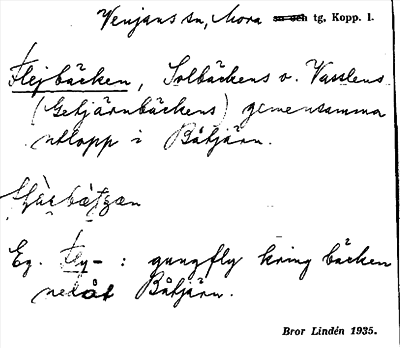 Venjans sn, Mora so och tg. Kopp. l.
Flejbäcken, Solbäckens o. Vasslens
(Getjärnbäckens) gemensamma
utlopp i Båtjärn.
Eg. Fly- : gungfly kring bäcken
nedåt Båtjärn.
Bror Lindén 1935.